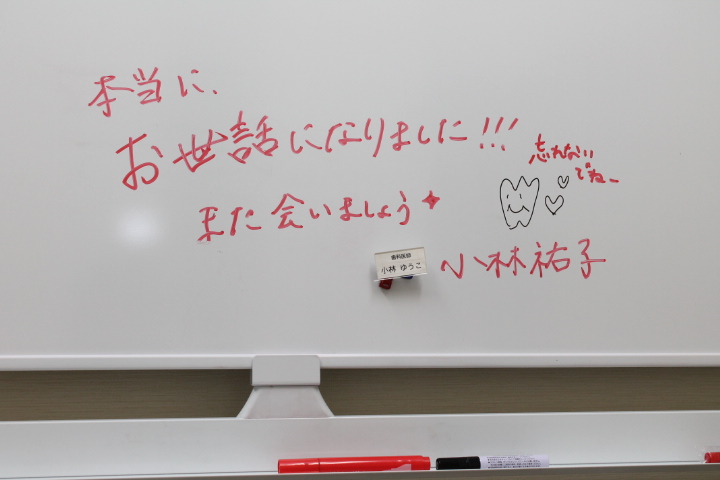 本当に、
お世話になりました!!!
忘れない
でねー
また会いましょう
歯科医師
小林 ゆうこ
小林祐子